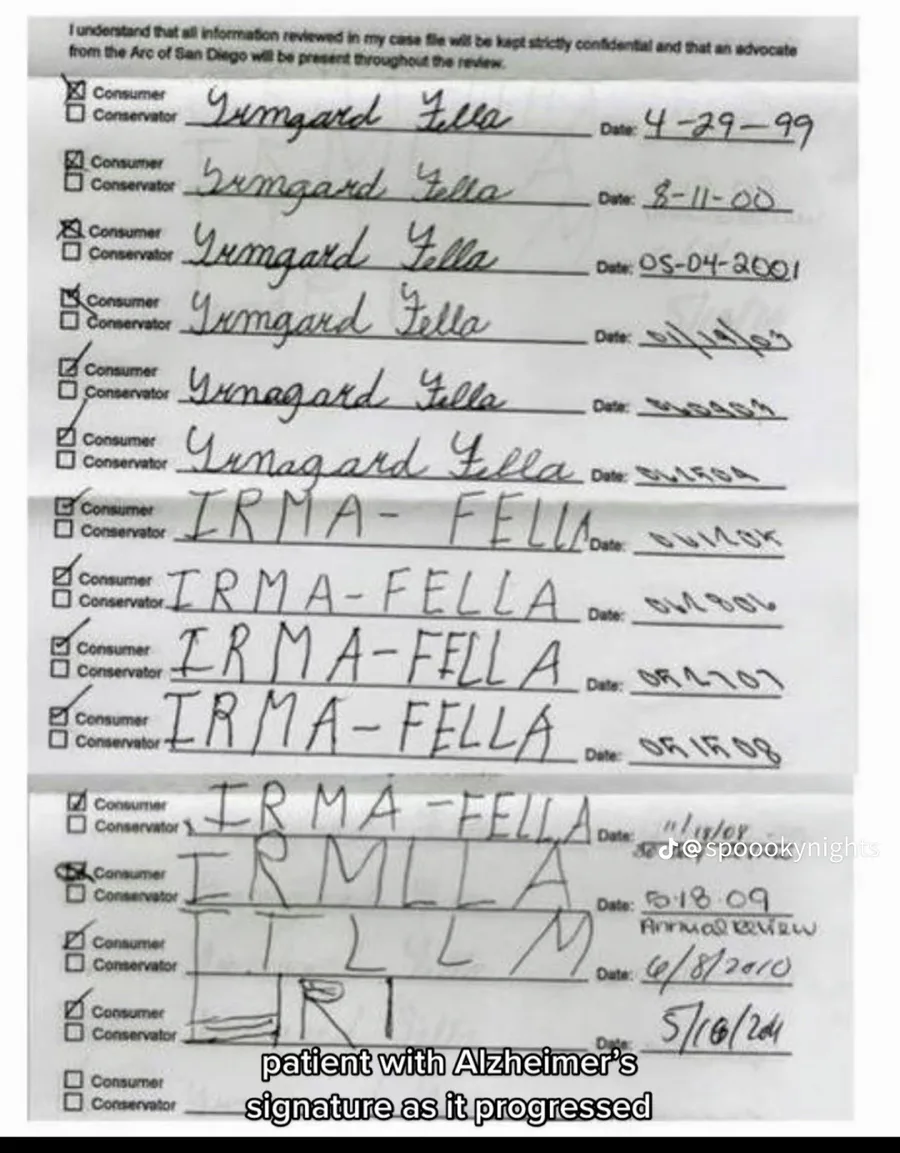 I understand that all information reviewed in my case file will be kept strictly confidential and that an advocate
from the Arc of San Diego will be present throughout the review.
Consumer
Conservator Yrmgard Fella Date: 4-29-99
Consumer
Conservator Yrmgard Fella Date: 8-11-00
Consumer
Conservator Yrmgard Fella Date: 05-04-2001
Consumer
Conservator Yrmgard Fella Date:
Consumer
Conservator Yrnagard Fella Date:
Consumer
Conservator Yrnagard Fella Date:
Consumer
Conservator IRMA- FELLA Date:
Consumer
Conservator IRMA-FELLA Date:
Consumer
Conservator IRMA-FELLA Date:
Consumer
Conservator IRMA-FELLA Date: 051508
Consumer
Conservator IRMA-FELLA Date: 11/18/08
@spoookynights
Consumer
Conservator IRMLLA Date: 5.18.09
Annual Review
Consumer
Conservator ITLLM Date: 6/8/2010
Consumer
Conservator RI Date:
patient with Alzheimer's
Consumer
Conservator
signature as it progressed